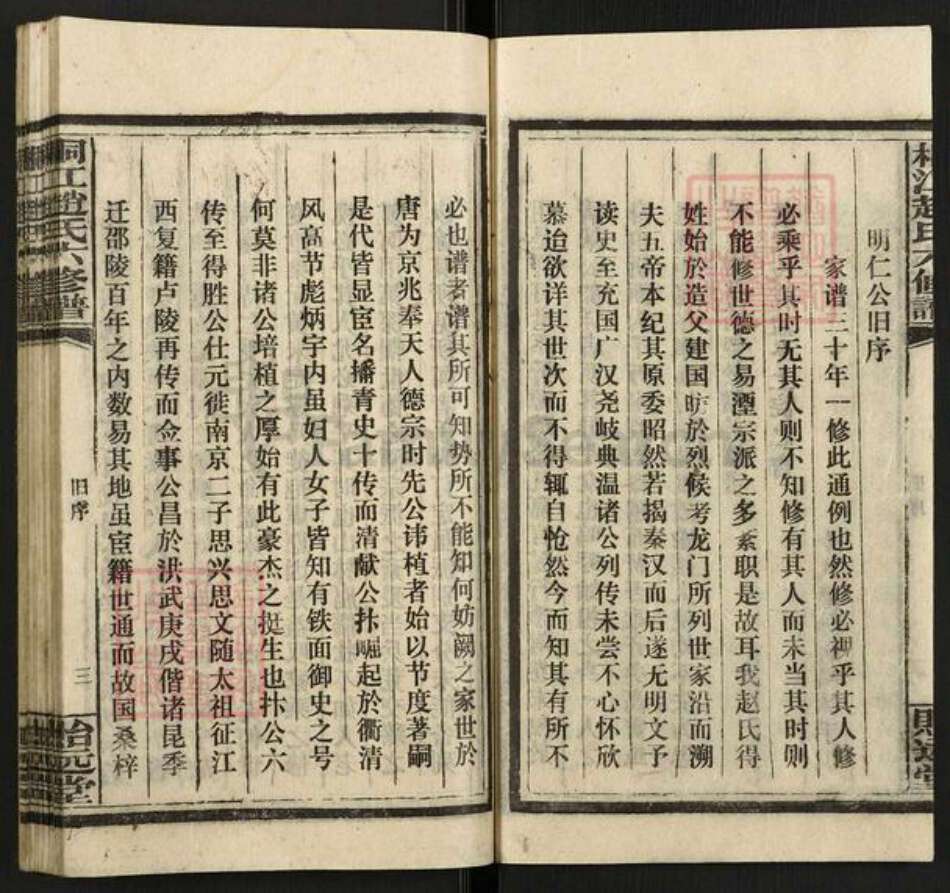 明仁公旧序
家谱三十年一修此通例也然修必神乎其人修
必乘乎其时无其人则不知修有其人而未当其时则
不能修世德之易湮宗派之多紊职是故耳我赵氏得
姓始於造父建国昉於烈候考龙门所列世家沿而溯
夫五帝本纪其原委昭然若揭秦汉而后遂无明文予
读史至充国广汉尧岐典温诸公列传未尝不心怀欣
慕迨欲详其世次而不得辄自怆然今而知其有所不
必也谱者谱其所可知势所不能知何妨阙之家世於
唐为京兆奉天人德宗时先公讳植者始以节度著嗣
是代皆显宦名播青史十传而清献公抃崛起於衢清
风高节彪炳宇内虽妇人女子皆知有铁面御史之号
何莫非诸公培植之厚始有此豪杰之挺生也抃公六
传至得胜公仕元徙南京二子思兴思文随太祖征江
西复籍卢陵再传而佥事公昌於洪武庚戌偕诸昆季
迁邵陵百年之内数易其地虽宦籍世通而故国桑梓
桐江趙氏六修譜
旧序
三